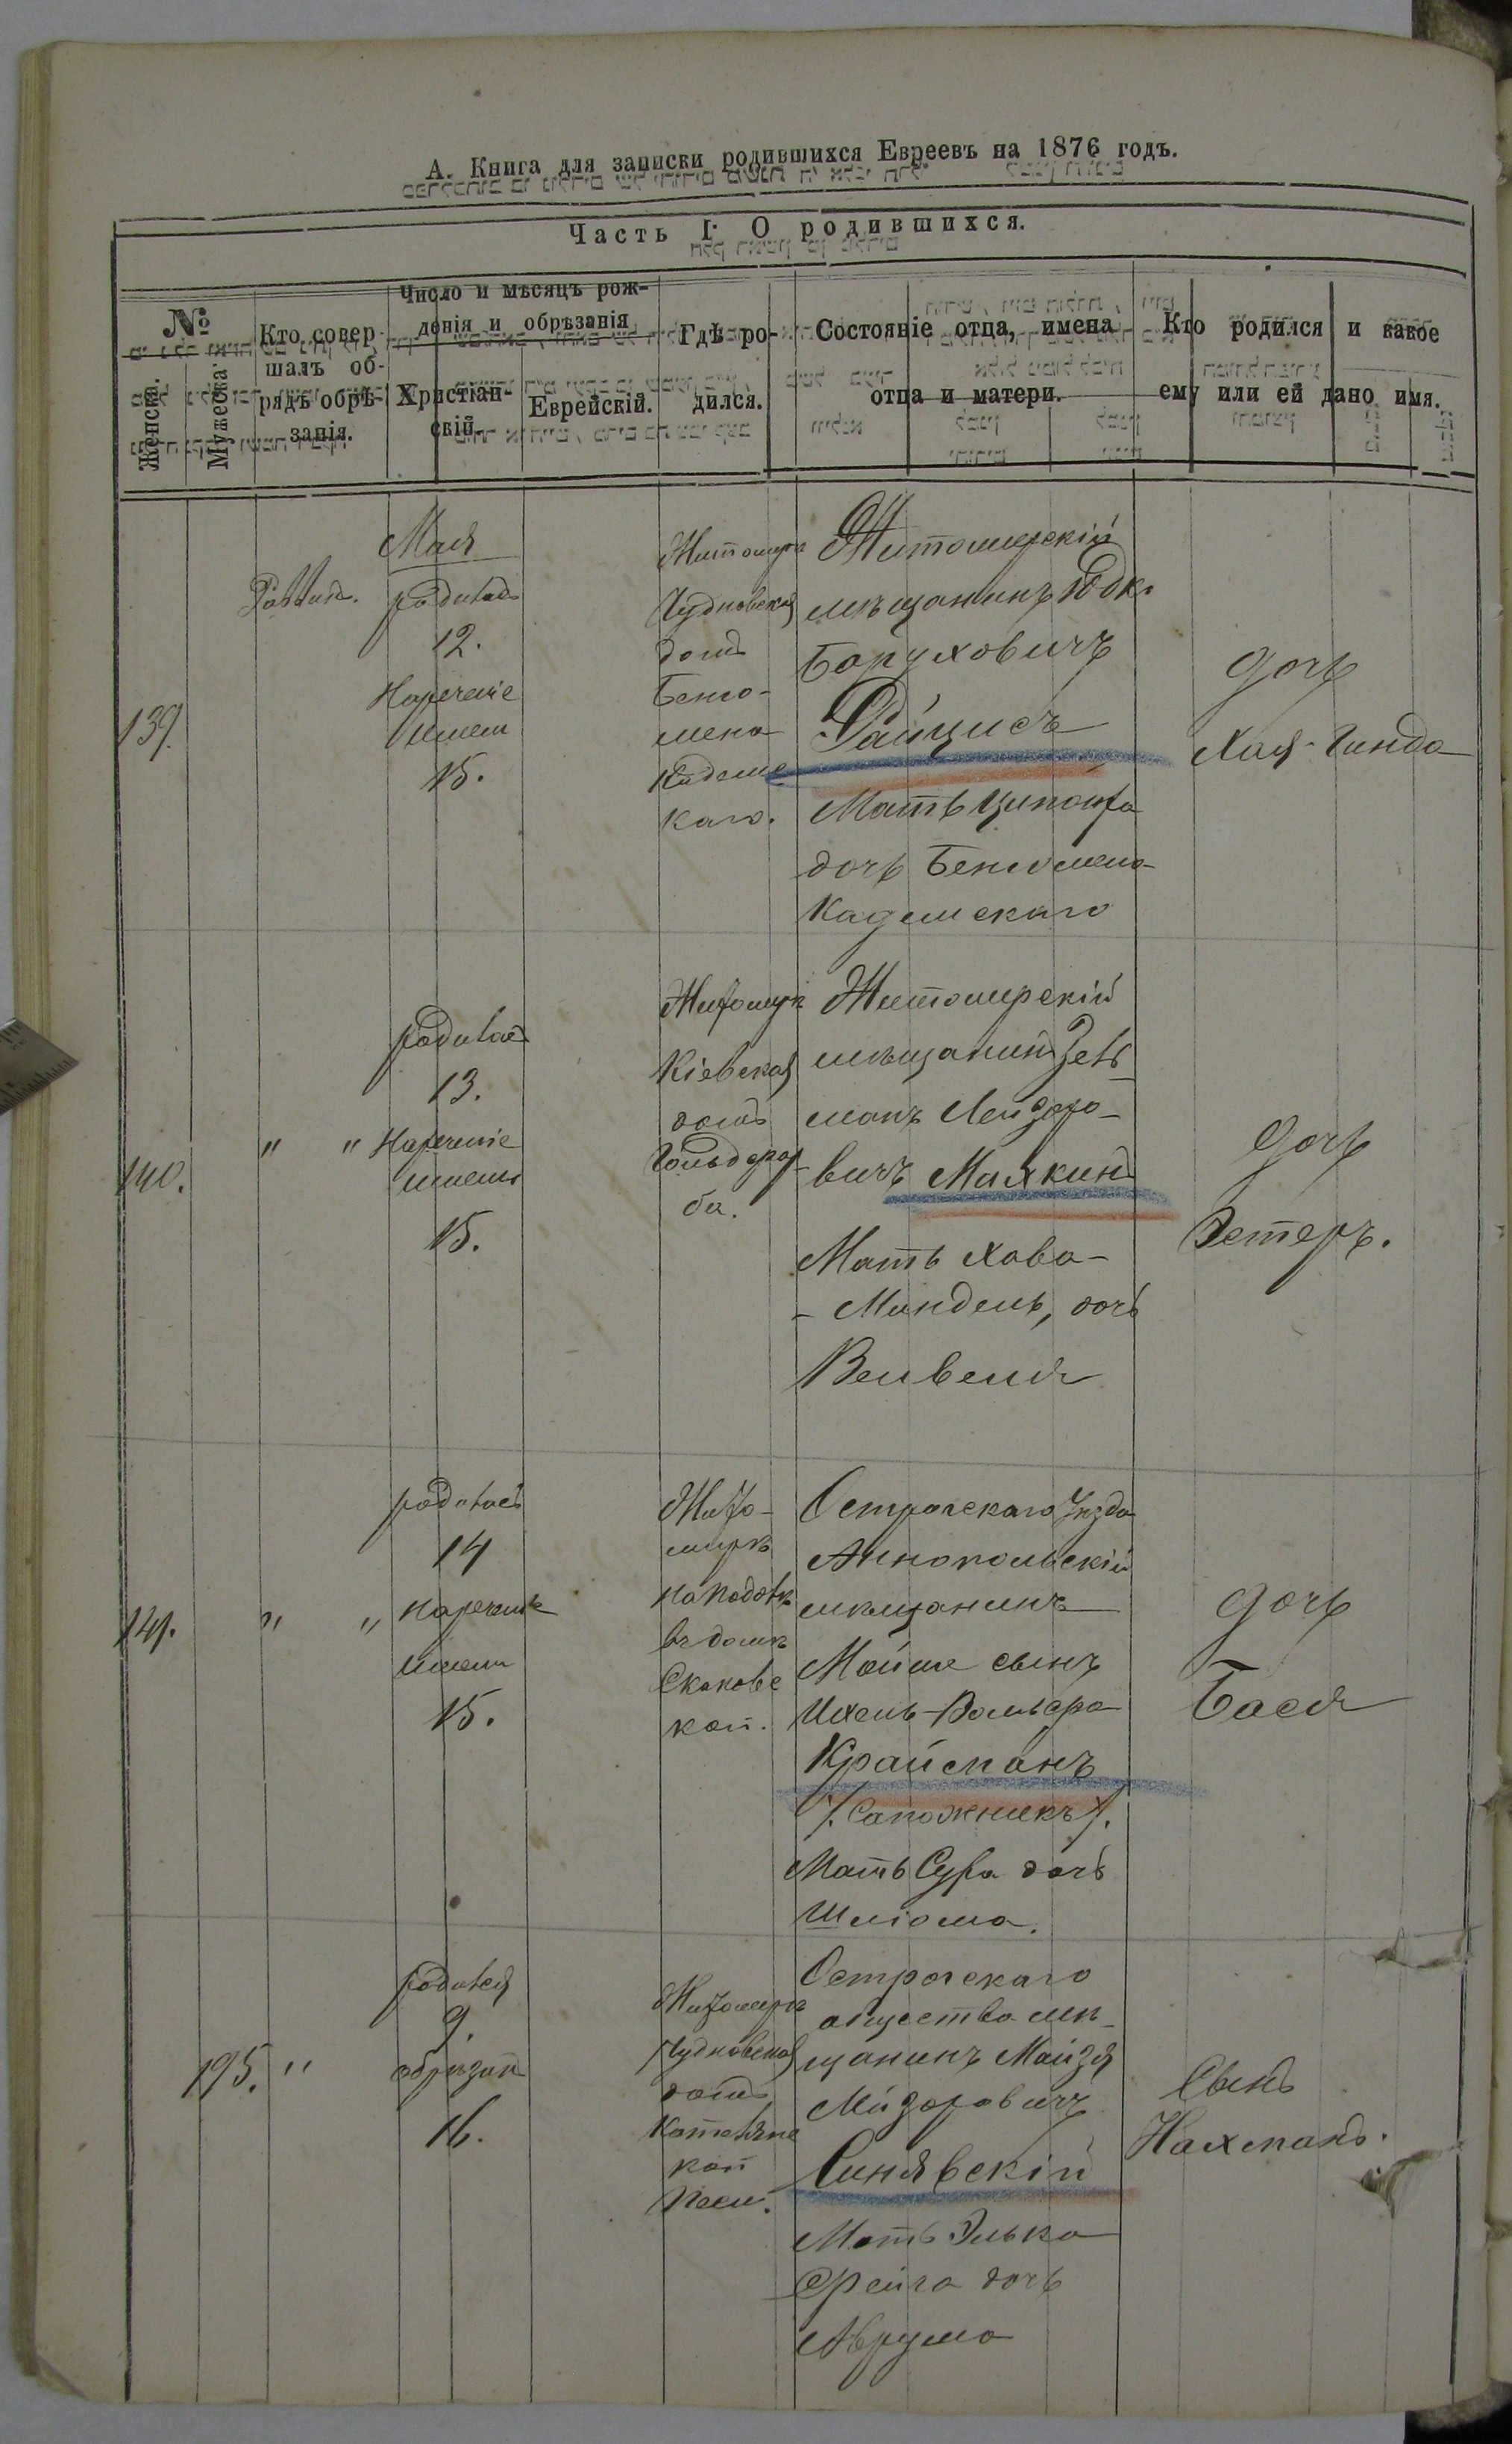 А. Книга для записки родившихся Евреевъ на 1876 годъ.
Часть I. О родившихся.
№
Женска.
Мужеска.
Кто совер-
шалъ об-
рядъ обрѣ-
занія.
Число и мѣсяцъ рож-
денія и обрѣзанія
Христіан-
скій.
Еврейскій.
Гдѣ ро-
дился.
Состояніе отца, имена
отца и матери.
Кто родился и какое
ему или ей дано имя.
139.
Раввинъ.
Мая
родилась
12.
Наречение
имени
15.
Житомиръ
Чудновская
домъ
Бенio-
мена
Кадеше
каго.
Житомирскій
мѣщанинъ Юдко
Боруховичъ
Райцисъ
Мать Ципойра
дочь Бенiомена
Кадешскаго
дочь
Хая-Гинда
140.
" "
родилась
13.
Наречение
имени
15.
Житомиръ
Кіевская
домъ
Гольдфар-
ба.
Житомирскій
мѣщанинъ Зель-
манъ Лейзоро-
вичъ Маякинъ
Мать Хава-
- Миндель, дочь
Вельвеля
дочь
Эстеръ.
141.
" "
родилась
14
наречение
имени
15.
Жито-
миръ
на Подолѣ
въ домѣ
Скаковс
кой.
Острогскаго уѣзда
Аннопольскій
мѣщанинъ
Мойше сынъ
Ихель-Вольфа
Крайсманъ
/. Сапожникъ /.
Мать Сура дочь
Шлiома.
дочь
Бася
195. "
родился
9.
обрѣзанъ
16.
Житомиръ
Чудновская
домъ
кой
Песи.
Острогскаго
общества мѣ-
щанинъ Мойзя
Синявскій
Мать Элька
Фрейга дочь
Аврума
Сынъ
Нахманъ.